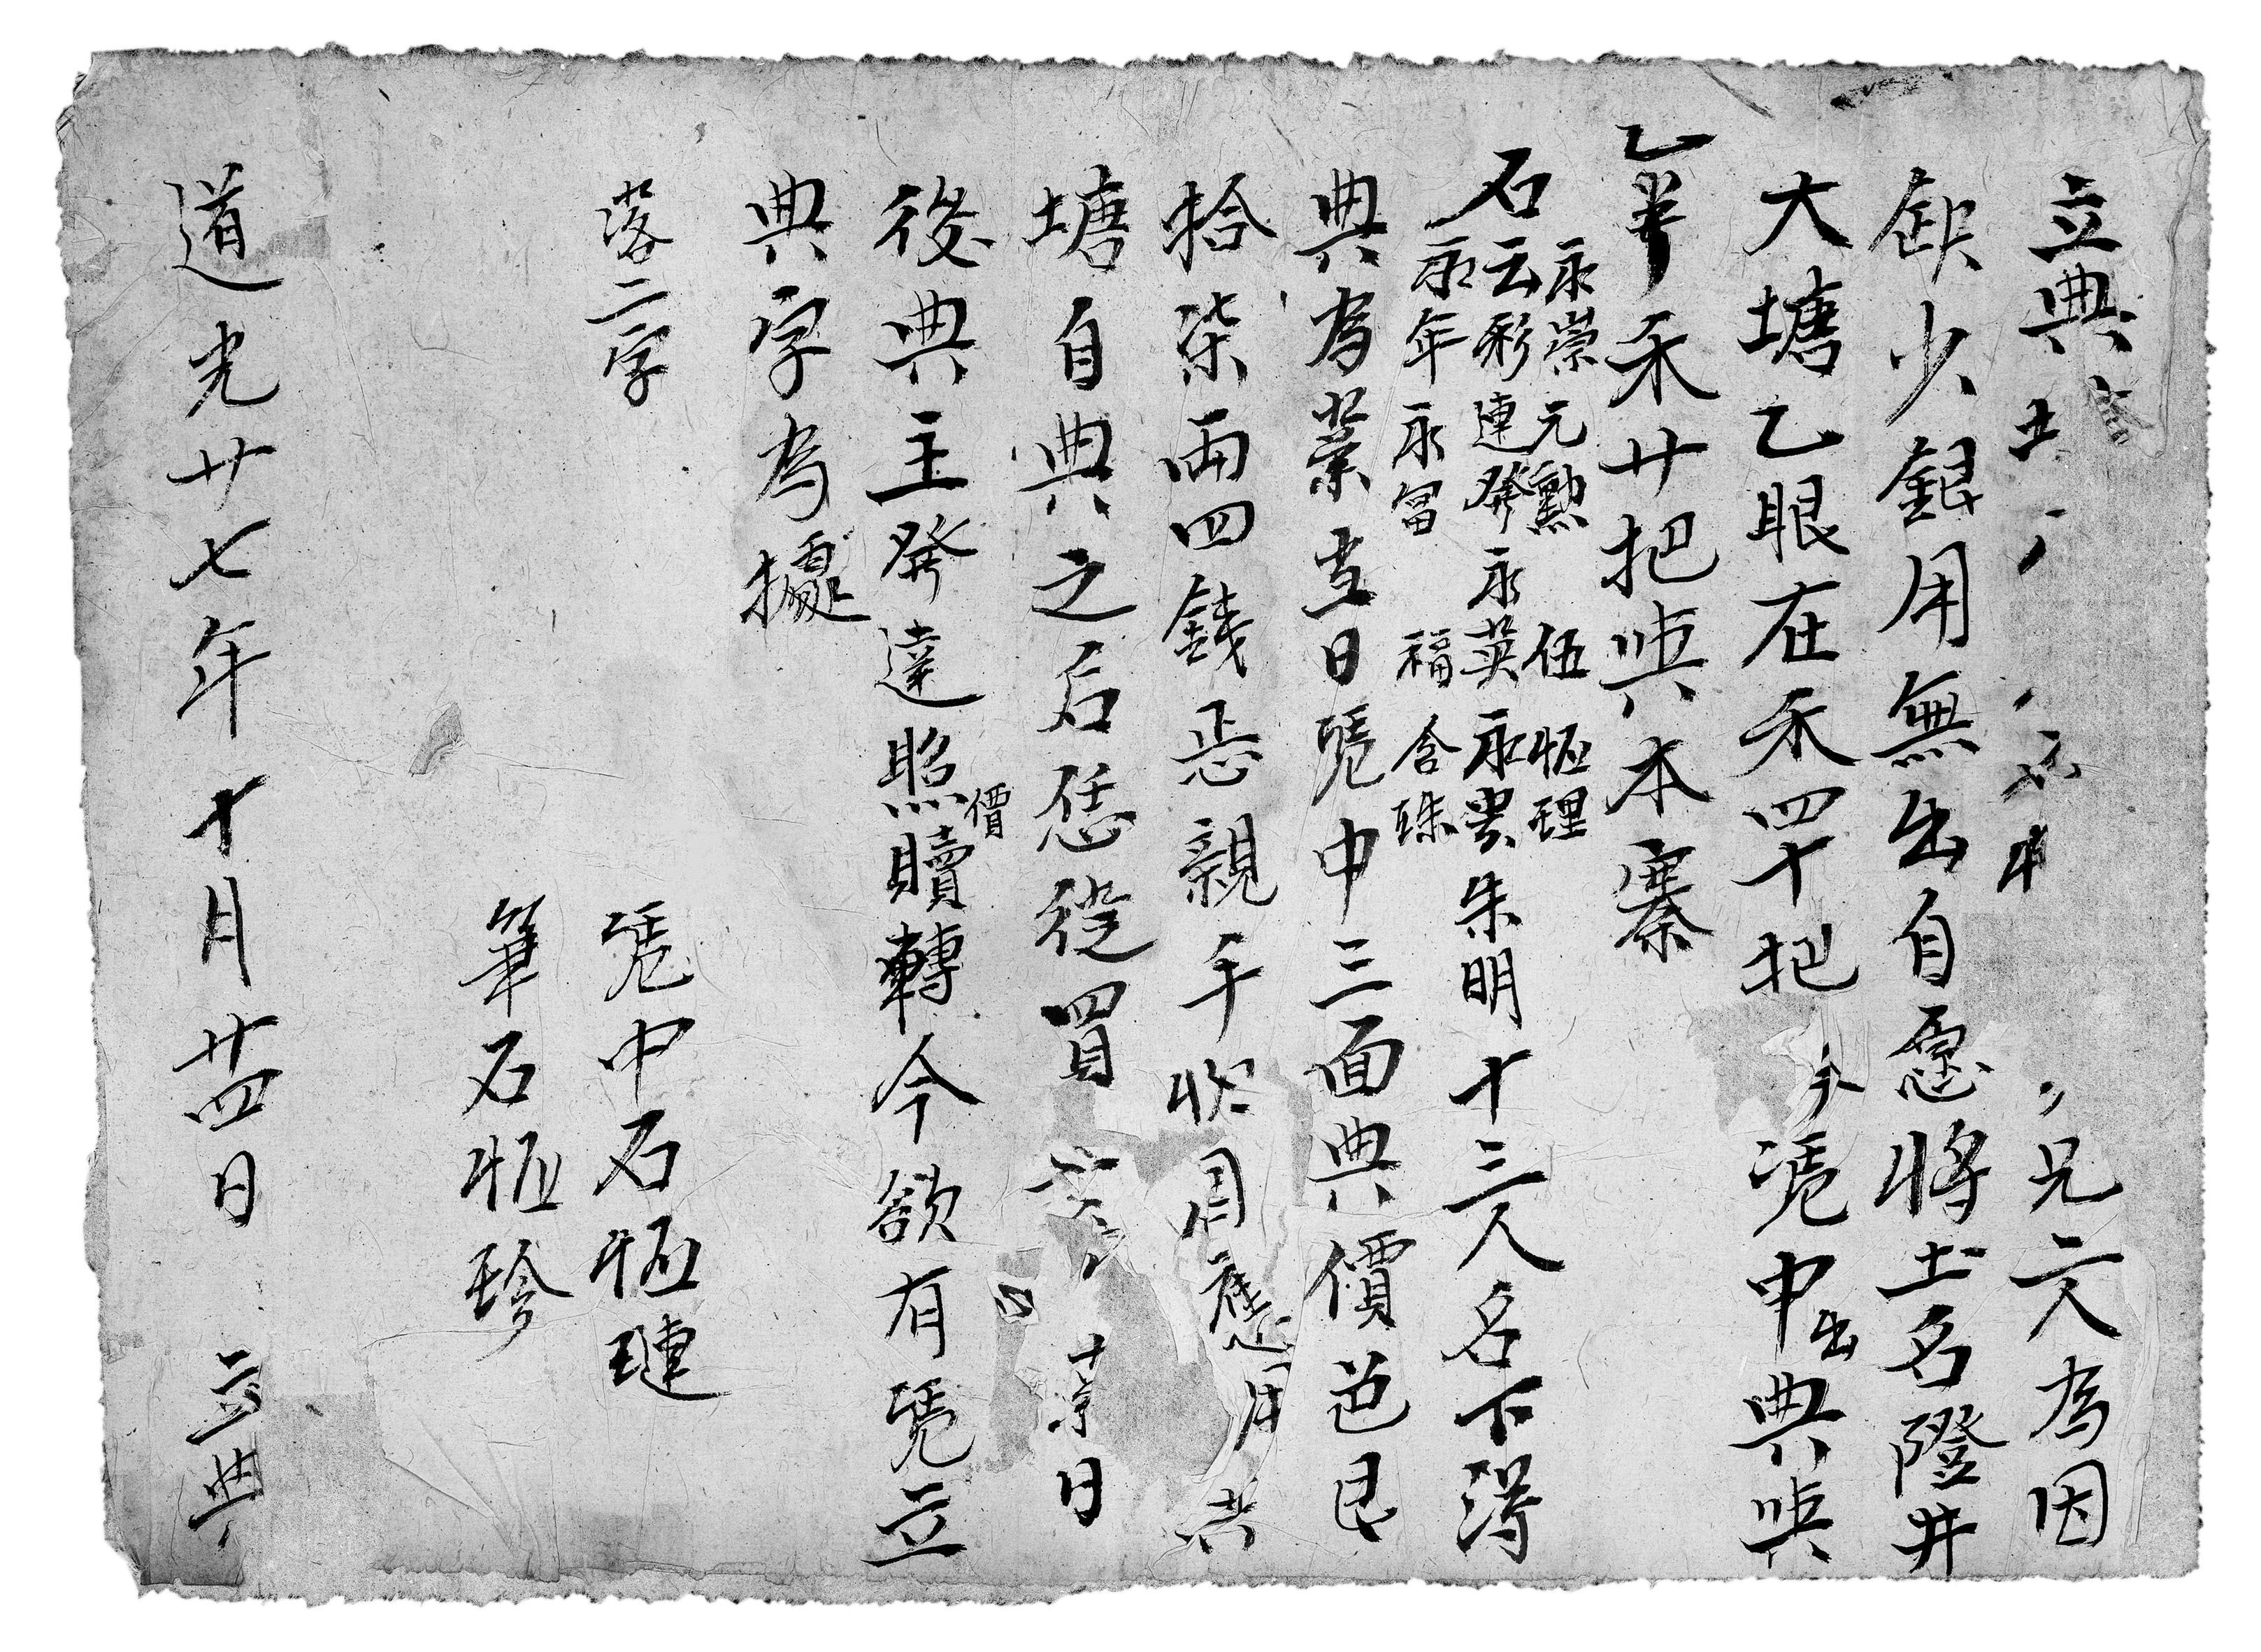 立典 兄二人為因
缺少銀用無出自愿將土名隥井
大塘乙眼在禾四十把 憑中出典與
乙半禾廿把與本寨
石 永崇 元勲 伍 恆理
云彩 連發 永英 永貴 朱明十三人名下淂
永年 永富 福 含珠
典為業當日凴中三面典價艮
拾柒兩四錢正親手收用應用 其
塘自典之后恁從買 日
後典主發達照價贖轉今欲有凴立
典字為據
落二字
凴中石恆璉
筆石恆珍
道光廿七年十月廿四日 立典